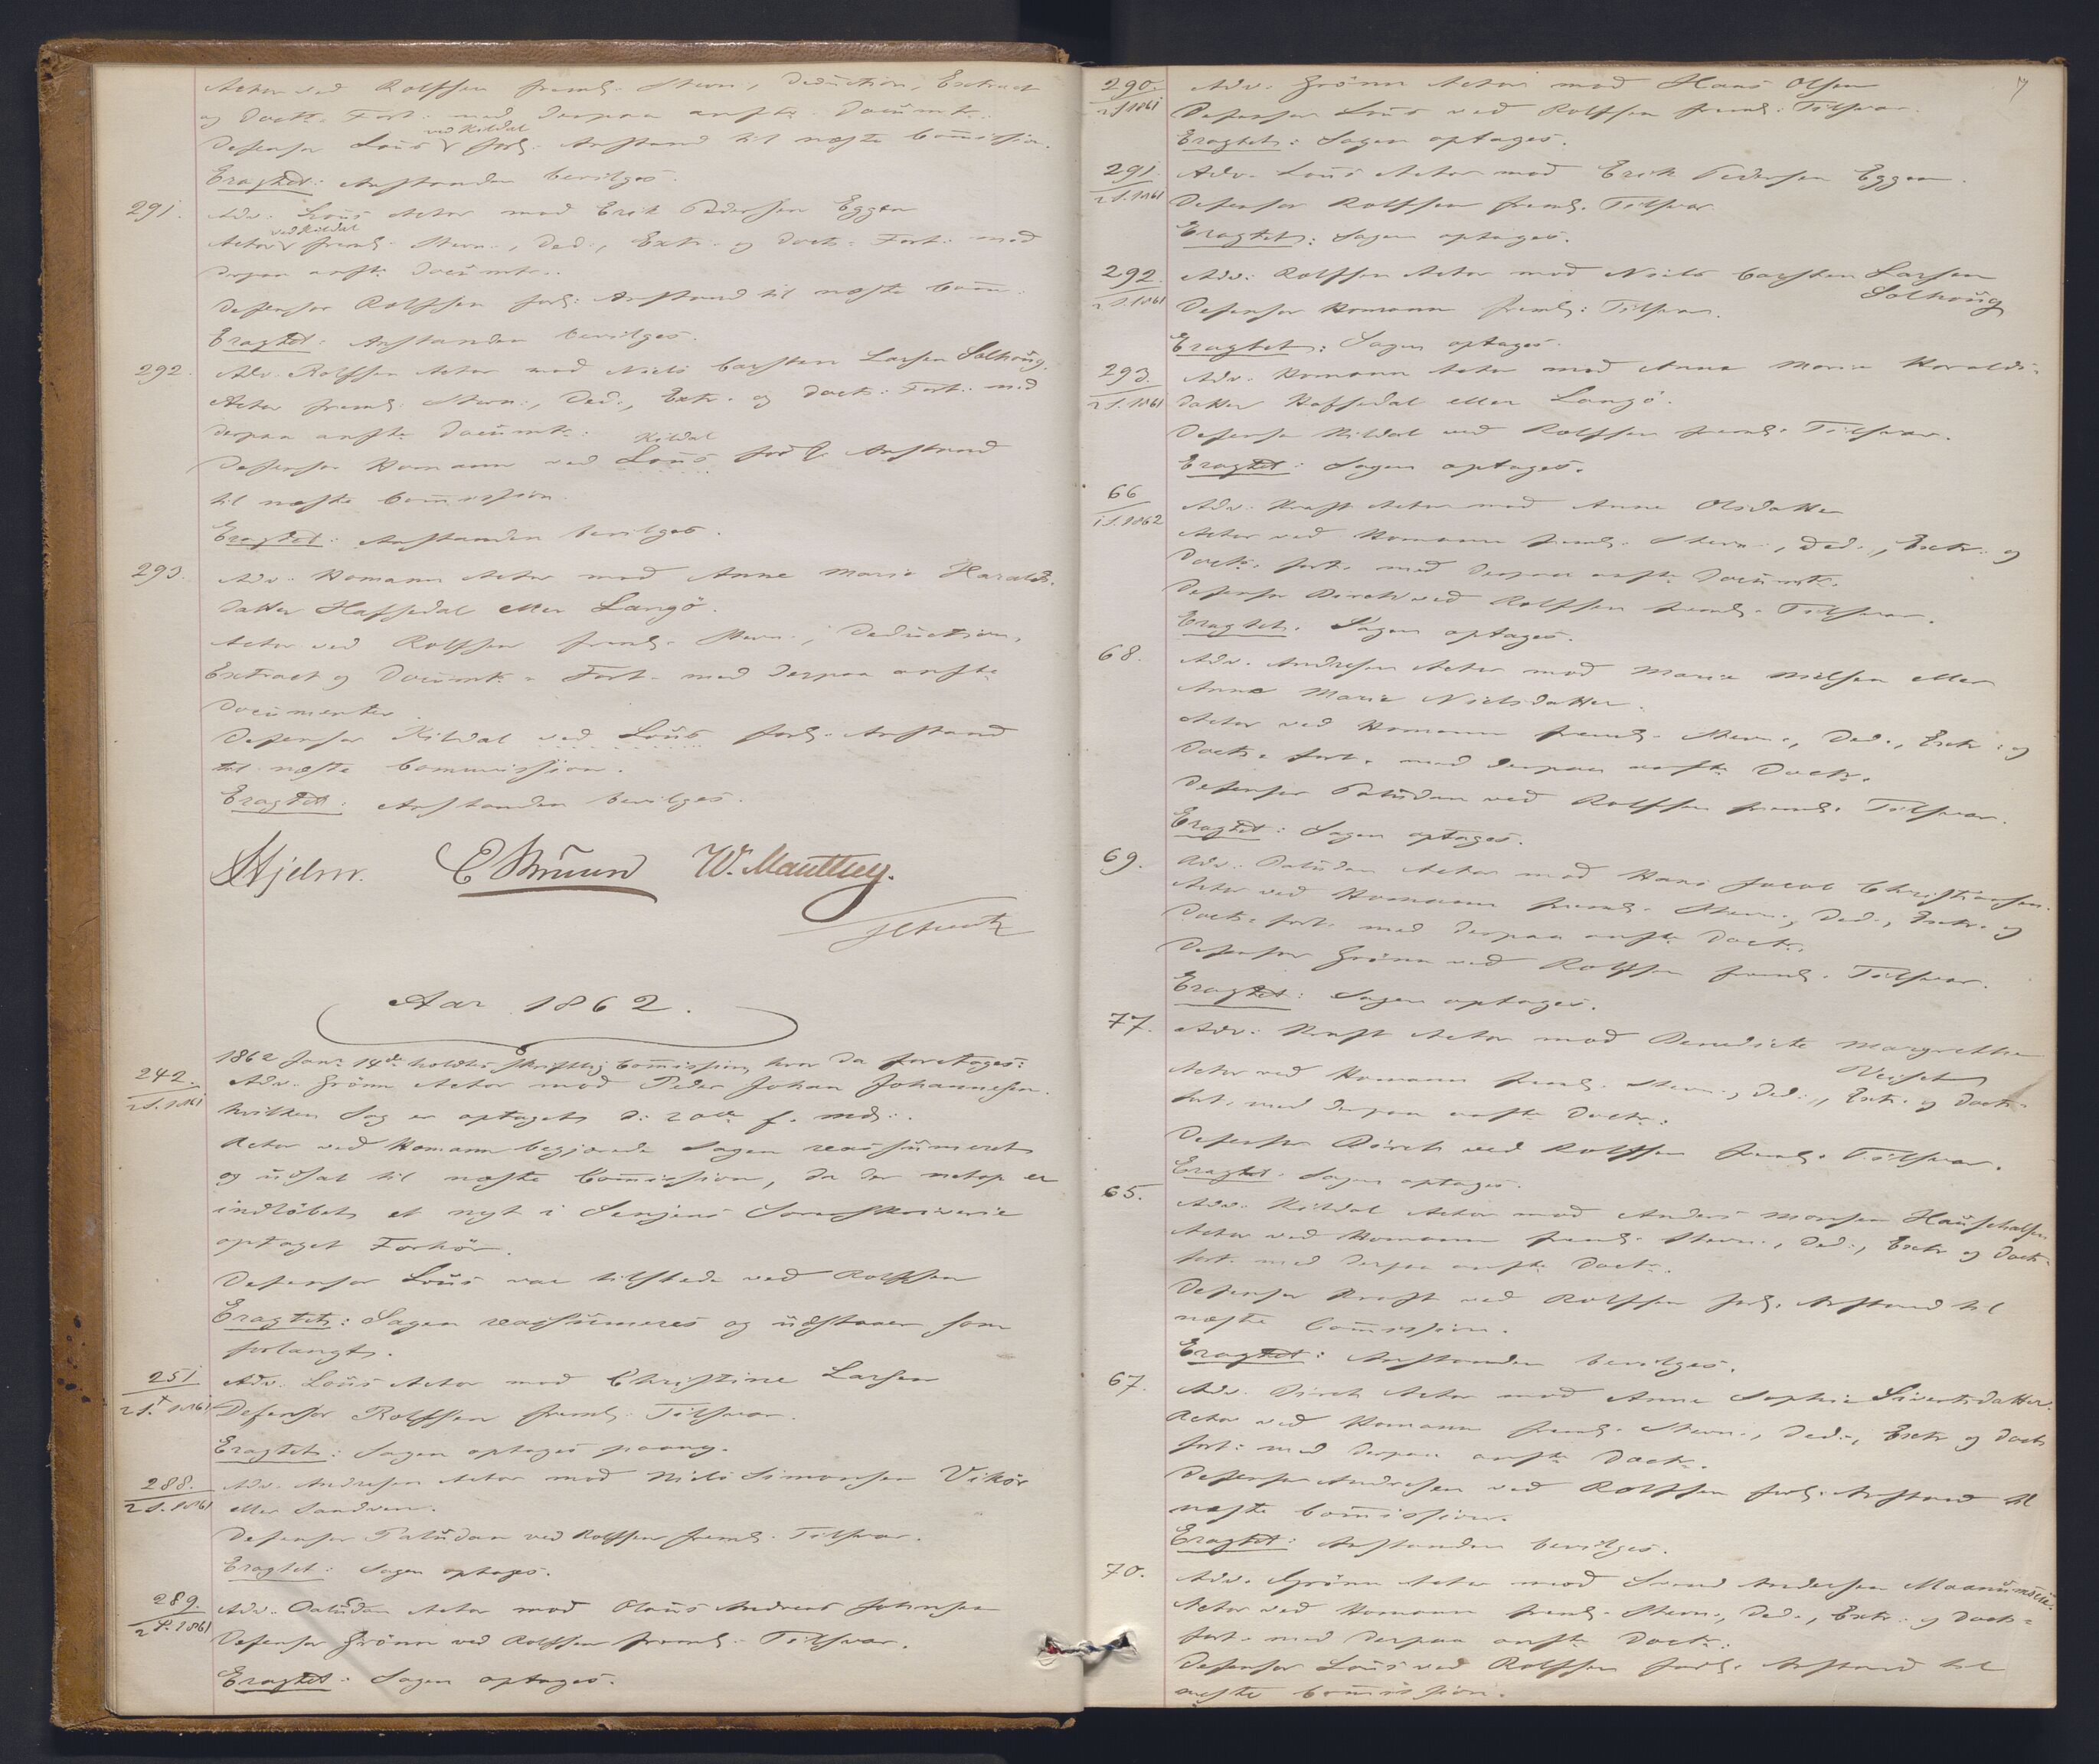 Actor ved Rolfsen freml. Stevn, Deduction, Extract
og Docts. Fort. med derpaa anførte Documtr.
Defensor Lous ved Kildal forl. Anstand til næste Commission.
Eragtet: Anstanden bevilges.
291. Adv. Lous Actor mod Erik Pedersen Eggen
Actor ved Kildal freml. Stevn., Ded., Extr. og Docts. Fort. med
derpaa anførte Documtr.
Defensor Rolfsen forl. Anstand til næste Comm.
Eragtet: Anstanden bevilges.
292. Adv. Rolfsen Actor mod Niels Carsten Larsen Solhoug.
Actor freml. Stevn., Ded., Extr. og Docts. Fort. med
derpaa anførte Documtr.
Defensor Homann ved Lous Kildal forl. Anstand
til næste Commission.
Eragtet: Anstanden bevilges.
293. Adv. Homann Actor mod Anne Marie Haralds-
datter Hafsedal eller Langö.
Actor ved Rolfsen freml. Stevn., Deduction,
Extract og Documts. Fort. med derpaa anførte
Documenter
Defensor Kildal ved Lous forl. Anstand
til næste Commission.
Eragtet: Anstanden bevilges.
Hjelm. E Bruun W. Manthey.
Aar 1862.
1862 Janr. 14de holdtes skriftlig Commission, hvor da foretages:
242. 2 S. 1861 Adv. Grönn Actor mod Peder Johan Johannesen.
hvilken Sag er optaget d. 20de f. Md.
Actor ved Homann begjærede Sagen reassumeret
og udsat til næste Commission, da der netop er
indlöbet et nyt i Senjens Sorenskriverie
optaget Forhör.
Defensor Lous var tilstede ved Rolfsen
Eragtet: Sagen reassumeres og udstaaer som
forlangt.
251. 2 S. 1861 Adv. Lous Actor mod Christine Larsen
Defensor Rolfsen freml. Tilsvar.
Eragtet: Sagen optages paany.
288. 2 S. 1861 Adv. Andresen Actor mod Niels Simonsen Vikör
eller Sandven.
Defensor Paludan ved Rolfsen freml. Tilsvar.
Eragtet: Sagen optages.
289. 2 S. 1861 Adv. Paludan Actor mod Olaus Andreas Johnsen
Defensor Grönn ved Rolfsen freml. Tilsvar.
Eragtet: Sagen optages.
290. 2 S 1861 Adv. Grönn Actor mod Hans Olsen
Defensor Lous ved Rolfsen freml. Tilsvar.
Eragtet: Sagen optages.
291. 2 S. 1861 Adv. Lous Actor mod Erik Pedersen Eggen.
Defensor Rolfsen freml. Tilsvar.
Eragtet: Sagen optages.
292. 2 S. 1861 Adv. Rolfsen Actor mod Niels Carsten Larsen
Solhoug
Defensor Homann freml. Tilsvar.
Eragtet: Sagen optages.
293. 2 S. 1861 Adv. Homann Actor mod Anne Marie Haralds-
datter Hafsedal eller Langö.
Defensor Kildal ved Rolfsen freml. Tilsvar.
Eragtet: Sagen optages.
66 1 S. 1862 Adv. Kraft Actor mod Anne Olsdatter
Actor ved Homann freml. Stevn., Ded., Extr. og
Docts. fort. med derpaa anførte Documtr.
Defensor Dirch ved Rolfsen freml. Tilsvar.
Eragtet. Sagen optages.
68. Adv. Andresen Actor mod Marie Nielsen eller
Anne Marie Nielsdatter.
Actor ved Homann freml. Stevn., Ded., Extr. og
Docts. fort. med derpaa anførte Doctr.
Defensor Paludan ved Rolfsen freml. Tilsvar.
Eragtet: Sagen optages.
69. Adv. Paludan Actor mod Hans Jacob Christiansen.
Actor ved Homann freml. Stevn., Ded., Extr. og
Docts. fort. med derpaa anførte Doctr.
Defensor Grönn ved Rolfsen freml. Tilsvar.
Eragtet: Sagen optages.
77. Adv. Kraft Actor mod Benedicte Margrethe
Veiset
Actor ved Homann freml. Stevn., Ded., Extr. og Docts.
fort. med derpaa anførte Doctr.
Defensor Dirch ved Rolfsen freml. Tilsvar.
Eragtet. Sagen optages.
65. Adv. Kildal Actor mod Anders Monsen
Actor ved Homann freml. Stevn., Ded., Extr. og Docts.
fort. med derpaa anførte Doctr.
Defensor Kraft ved Rolfsen forl. Anstand til
næste Commission.
Eragtet: Anstanden bevilges.
67. Adv. Dirch Actor mod Anne Sophie Sivertsdatter.
Actor ved Homann freml. Stevn., Ded., Extr. og Docts
fort. med derpaa anførte Doctr.
Defensor Andresen ved Rolfsen forl. Anstand til
næste Commission.
Eragtet: Anstanden bevilges.
70. Adv. Grönn Actor mod Svend Andersen
Actor ved Homann freml. Stevn., Ded., Extr. og Docts.
fort. med derpaa anførte Doctr.
Defensor Lous ved Rolfsen forl. Anstand til
næste Commission.